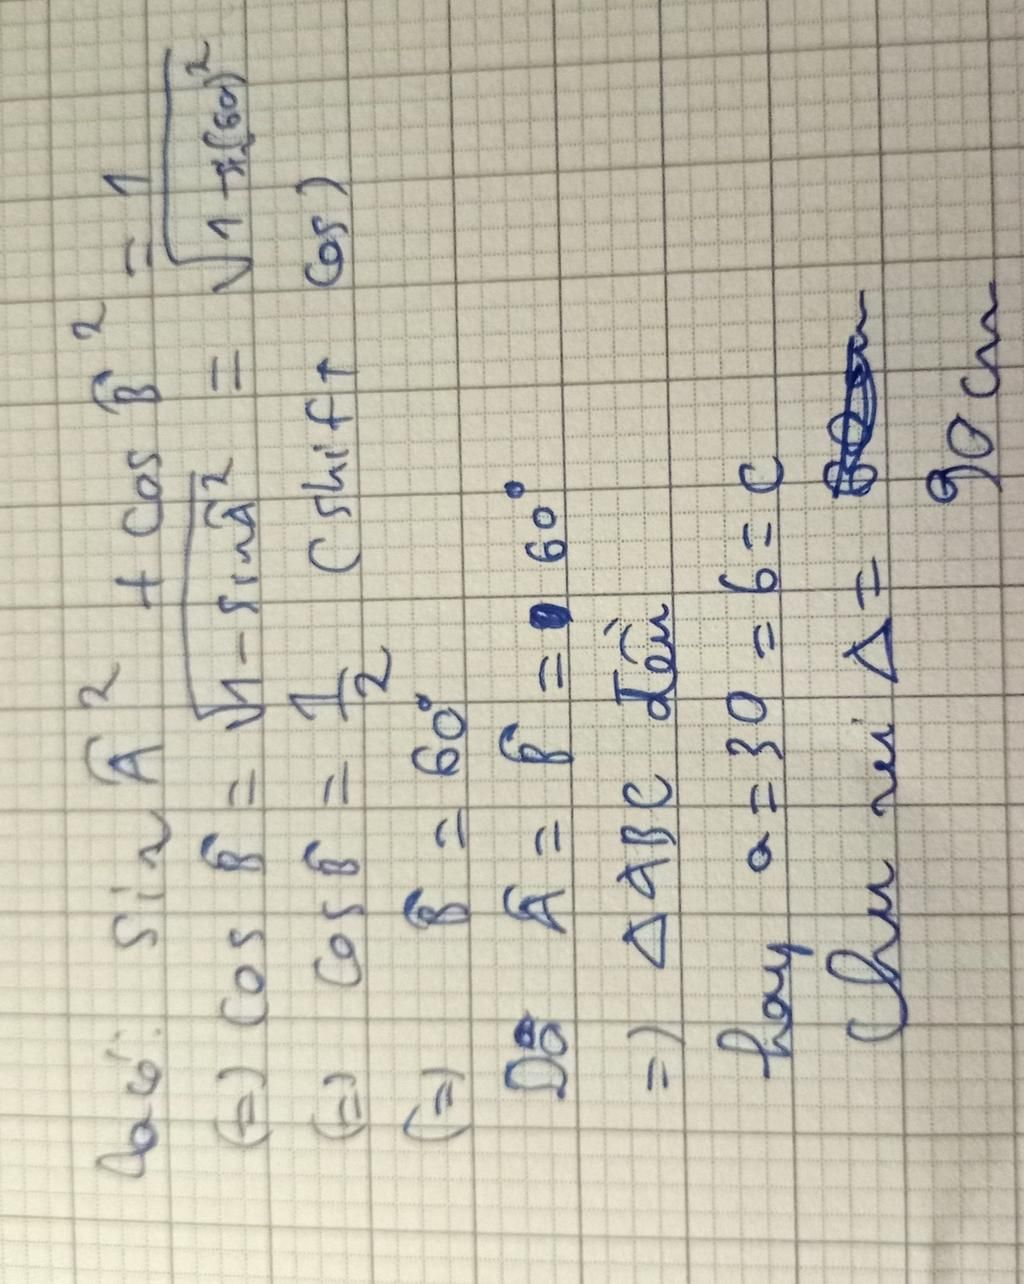 Ta có: sin Â² + cos B̂² = 1
(=) cos B̂ = √1 - sin Â² = √1 - s(60)²
(=) cos B̂ = 1/2 (shift cos)
(=) B̂ = 60°
Do Â = B̂ = 60°
=) Δ ABC đều
hay a = 30 = b = c
Chu vi Δ =
90 cm